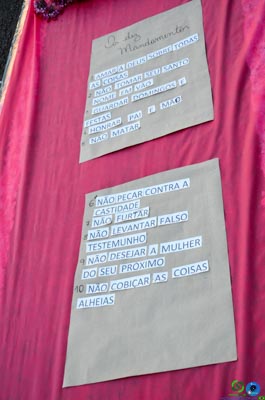 Os dez
Mandamentos
1 AMARÁ DEUS SOBRE TODAS
AS COISAS
2 NÃO TOMAR SEU SANTO
NOME EM VÃO
3 GUARDAR DOMINGOS E
FESTAS
4 HONRAR PAI E MÃE
5 NÃO MATAR
6 NÃO PECAR CONTRA A
CASTIDADE
7 NÃO FURTAR
8 NÃO LEVANTAR FALSO
TESTEMUNHO
9 NÃO DESEJAR A MULHER
DO SEU PRÓXIMO
10 NÃO COBIÇAR AS COISAS
ALHEIAS